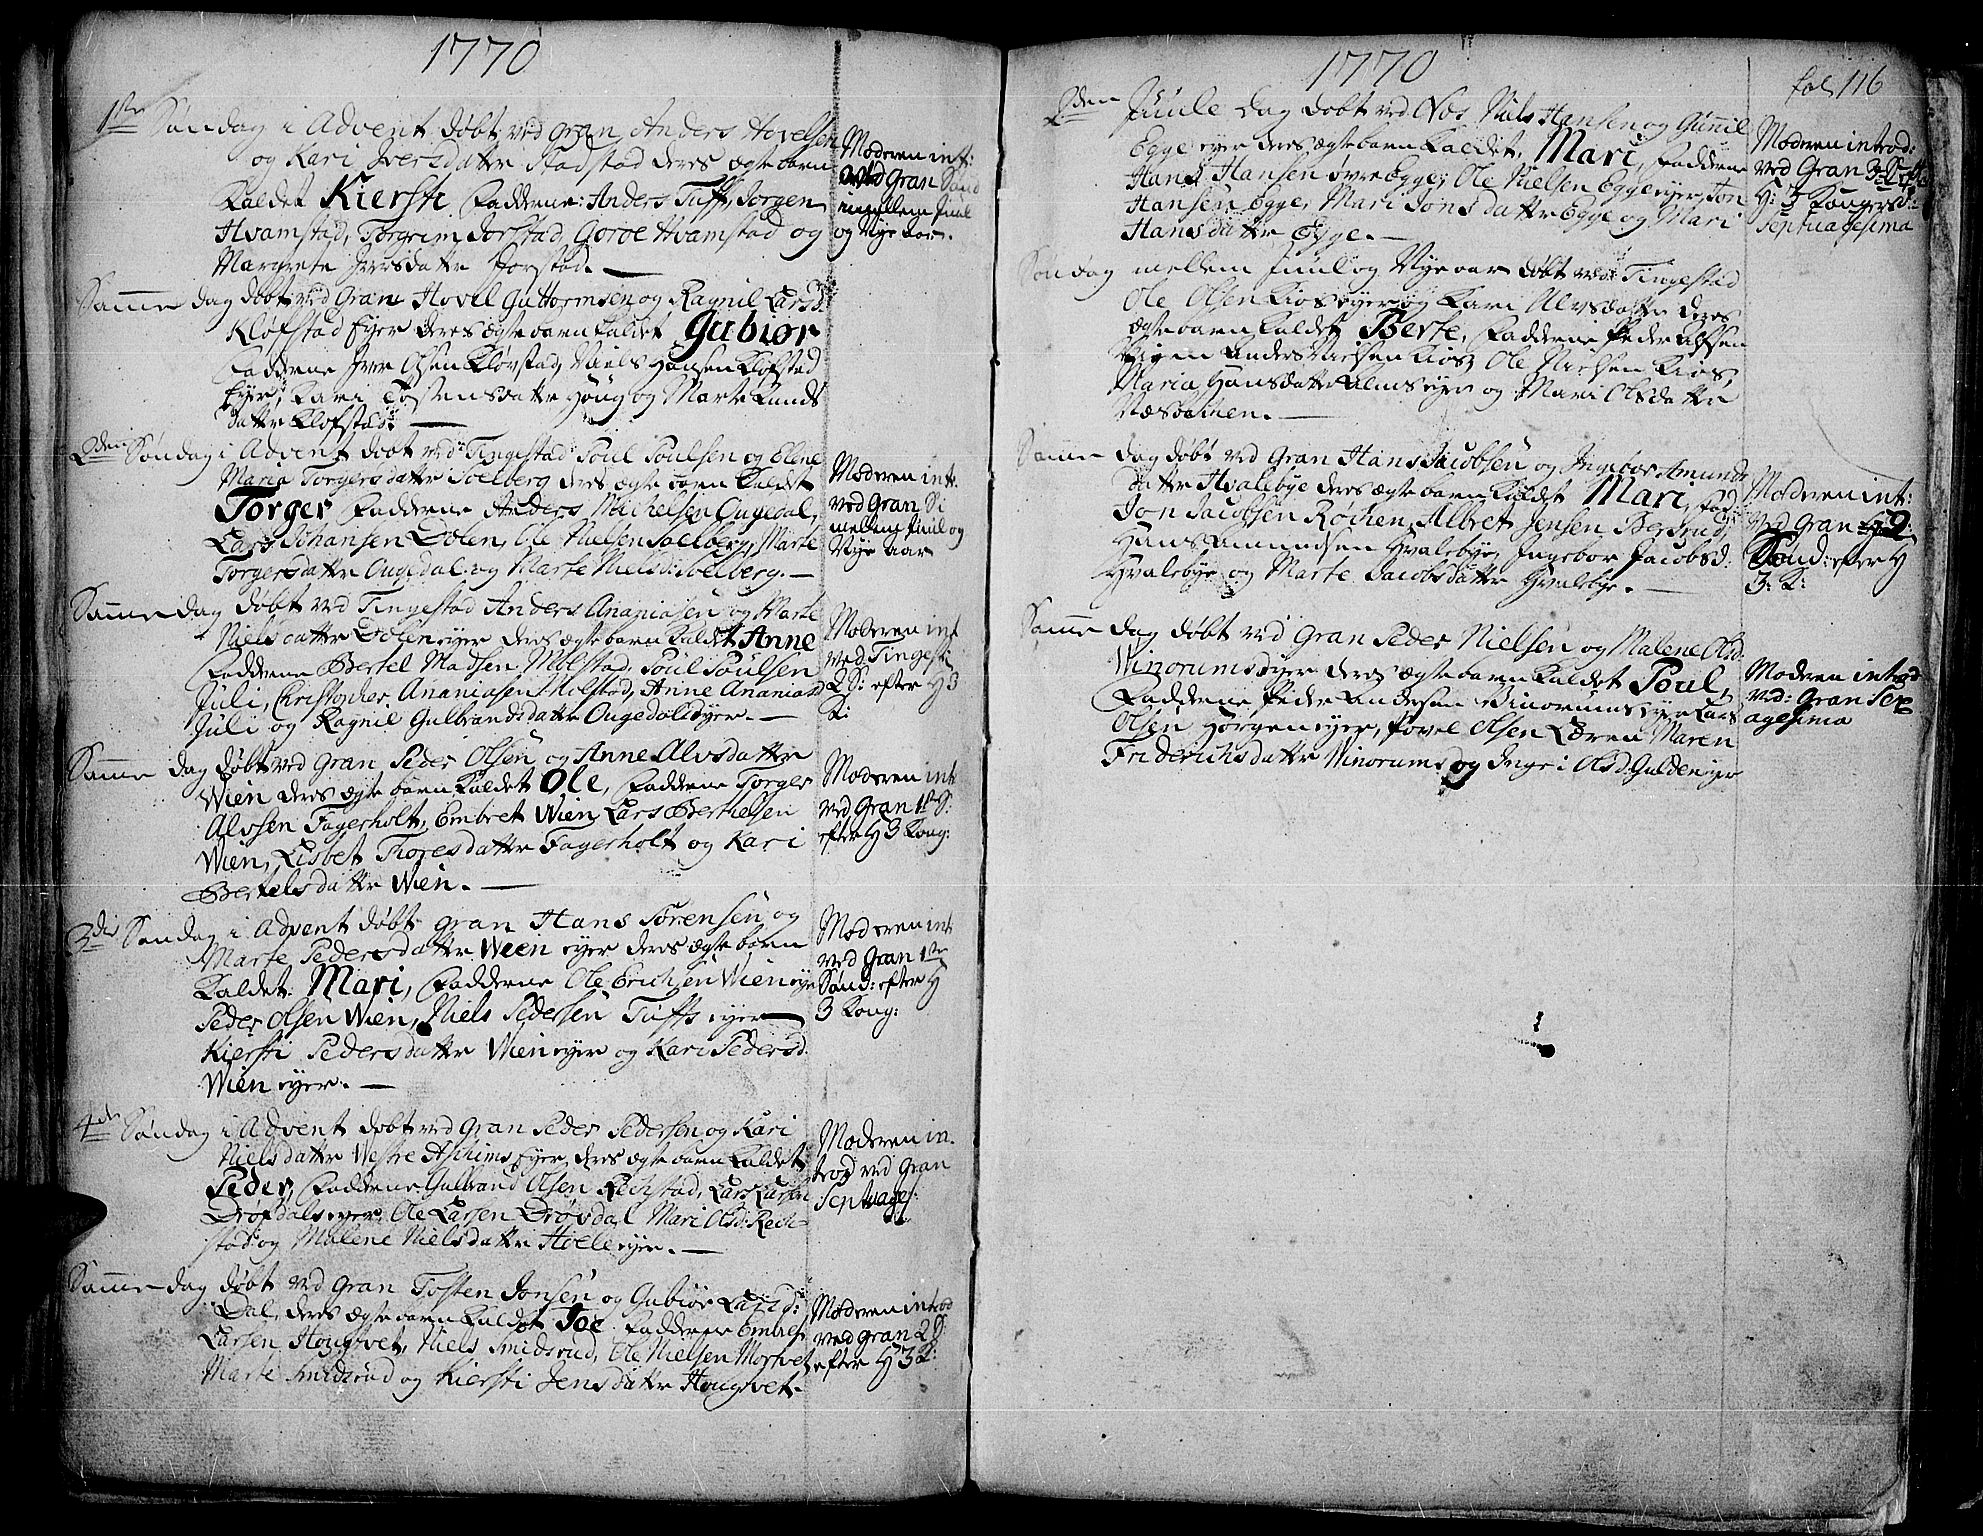 1770
1ste Søndag i Advent døbt ved Gran Anders Hovelsen
og Kari Iversdatter Stadstad deres ægte barn
kaldet Kiersti, Fadderne: Anders Tuff, Jorgen
Hvamstad, Torgrim Jorstad, Goroe Hvamstad og
Margrete Iversdatter Horstad. —
Moderen int:
ved Gran Sønd
mellem Juul
og Nye aar.
Samme dag døbt ved Gran Hovel Guttormsen og Ragnil Larsd:
Kløfstad Eyer deres ægte barn kaldet Gubiør
Fadderne Iver Olsen Kløvstad, Niels Hansen Kløfstad
Eyer, Kari Tostensdatter Houg og Marte Knuds
datter Kløfstad. —
2den Søndag i Advent døbt ved Tingelstad Poul Poulsen og Elene
Maria Torgersdatter Soelberg deres ægte barn kaldet
Torger Fadderne Anders Michelsen Ougedal,
Lars Johansen Dolen, Ole Nielsen Soelberg, Marte
Torgersdatter Ougedal og Marte Nielsd: Soelberg. —
Moderen int.
ved Gran Si
mellem Juul og
Nye aar
Samme dag døbt ved Tingelstad Anders Ananiasen og Marte
Nielsdatter Dolen eyer deres ægte barn kaldet Anne
Fadderne Bertel Madsen Molstad, Poul Poulsen
Juli, Christopher Ananiasen Molstad, Anne Ananiasd
Juli og Ragnil Gulbrandsdatter Ougedals eyer. —
Moderen int
ved Tingelst
2 S: efter H 3
K:
Samme dag døbt ved Gran Peder Olsen og Anne Alvsdatter
Wien deres ægte barn kaldet Ole, Fadderne Torger
Alvsen Fagerholt, Embret Wien, Lars Bertelsen
Wien, Lisbet Thoresdatter Fagerholt og Kari
Bertelsdatter Wien. —
Moderen int
ved Gran 1ste S:
efter H 3 Kong:
3die Søndag i Advent døbt Gran Hans Sørensen og
Marte Pedersdatter Ween eyer deres ægte barn
kaldet Mari, Fadderne Ole Erichsen Wien eye
Peder Olsen Wien, Niels Pedersen Tuffs eyer
Kiersti Pedersdatter Wien eyer og Kari Pedersd
Wien eyer. —
Moderen int
ved Gran 1ste
Sønd: efter H
3 Kong:
4de Søndag i Advent døbt ved Gran Peder Pedersen og Kari
Nielsdatter Westre Aschims Eyer deres ægte barn kaldet
Peder, Fadderne Gulbrand Olsen Rechstad, Lars Larsen
Drøfdals eyer, Ole Larsen Drøvdal Mari Olsd: Rech-
stad og Malene Nielsdatter Hoele eyer. —
Moderen in-
trod ved Gran
Septuages:
Samme dag døbt ved Gran Tosten Jonsen og Gubiør Larsd:
Dal, deres ægte barn kaldet Joe Fadderne Embret
Larsen Hougtvet, Niels Smidsrud, Ole Nielsen Morstvet
Marte Smidsrud og Kiersti Jensdatter Hougtvet.
Moderen introd
ved Gran 2 S:
efter H 3 K:
1770
fol 116
2den Juule Dag døbt ved Næs Niels Hansen og Gunnil
Egge eyer deres ægte barn kaldet Mari, Fadderne
Hans Hansen øvre Egge, Ole Nielsen Egge eyer, Jon
Hansen Egge, Mari Jonsdatter Egge og Mari
Hansdatter Egge. —
Moderen introd:
ved Gran
H: 3 Kongersd:
Septuagesima
Søndag mellem Juul og Nyeaar døbt ved Tingelstad
Ole Olsen Kios eyer og Kari Alvsdatter deres
ægte barn kaldet Berte, Fadderne Peder Alfsen
Anders Nielsen Kios, Ole Nielsen Kios,
Maria Hansdatter Alms eyer og Mari Olsdatter
Næsbakken. —
Samme dag døbt ved Gran Hans Jacobsen og Ingebor Amunds
datter Hvalebye deres ægte barn kaldet Mari, Fad:
Jon Jacobsen Røchen, Albret Jensen Bersrud,
Hans Amundsen Hvalebye, Ingebor Jacobsd:
Hvalebye og Marte Jacobsdatter Hvalebye. —
Moderen int:
ved Gran 2
Sønd: efter H
3. K:
Samme dag døbt ved Gran Peder Nielsen og Malene Olsd:
Winorums eyer deres ægte barn kaldet Poul,
Fadderne, Peder Andersen Vinorums eye Lars
Olsen Horgen eyer, Povel Olsen Læren Maren
Friderichsdatter Winorums og Inger Olsd Gulden eyer
Moderen introd
ved: Gran Sex
agesima